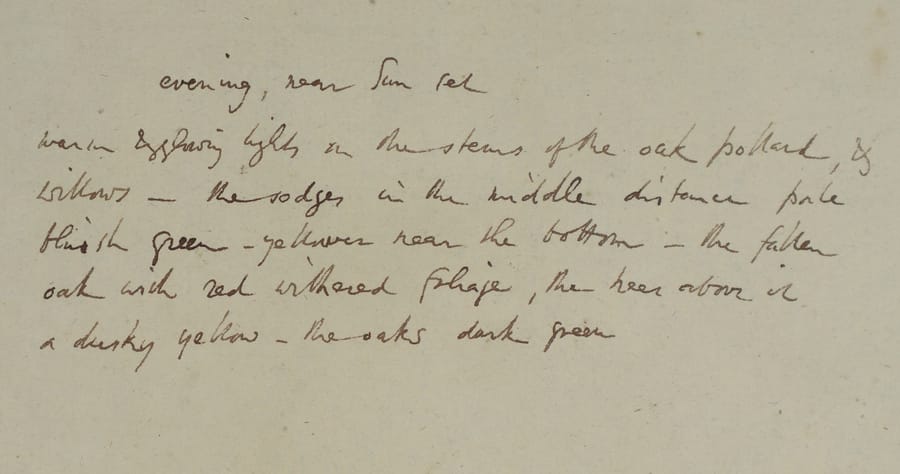 evening, near Sun set
warm & glowing lights on the stems of the oak pollard, &
willows – the sedges in the middle distance pale
bluish green – yellower near the bottom – the fallen
oak with red withered foliage, the trees above it
a dusky yellow – the oaks dark green